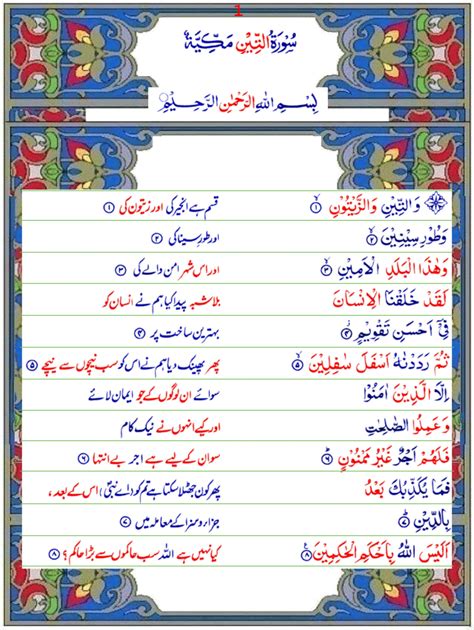 1
سُوْرَةُ التِّيْنِ مَكِّيَّةٌ
بِسْمِ اللهِ الرَّحْمٰنِ الرَّحِيْمِ
وَالتِّيْنِ وَالزَّيْتُوْنِ ۙ﴿۱﴾ قسم ہے انجیر کی اور زیتون کی ﴿۱﴾
وَطُوْرِ سِيْنِيْنَ ۙ﴿۲﴾ اور طورِ سینا کی ﴿۲﴾
وَهٰذَا الْبَلَدِ الْاَمِيْنِ ۙ﴿۳﴾ اور اس شہر امن والے کی ﴿۳﴾
لَقَدْ خَلَقْنَا الْاِنْسَانَ بلاشبہ پیدا کیا ہم نے انسان کو
فِيْٓ اَحْسَنِ تَقْوِيْمٍ ۫﴿۴﴾ بہترین ساخت پر ﴿۴﴾
ثُمَّ رَدَدْنٰهُ اَسْفَلَ سٰفِلِيْنَ ۙ﴿۵﴾ پھر پھینک دیا ہم نے اس کو سب نیچوں سے نیچے ﴿۵﴾
اِلَّا الَّذِيْنَ اٰمَنُوْا سوائے ان لوگوں کے جو ایمان لائے
وَعَمِلُوا الصّٰلِحٰتِ اور کیے انہوں نے نیک کام
فَلَهُمْ اَجْرٌ غَيْرُ مَمْنُوْنٍ ؕ﴿۶﴾ سو ان کے لیے ہے اجر بے انتہا ﴿۶﴾
فَمَا يُكَذِّبُكَ بَعْدُ پھر کون جھٹلا سکتا ہے تم کو (اے نبیؐ) اس کے بعد ،
بِالدِّيْنِ ؕ﴿۷﴾ جزاء و سزا کے معاملہ میں ﴿۷﴾
اَلَيْسَ اللهُ بِاَحْكَمِ الْحٰكِمِيْنَ ﴿۸﴾ کیا نہیں ہے اللہ سب حاکموں سے بڑا حاکم؟ ﴿۸﴾